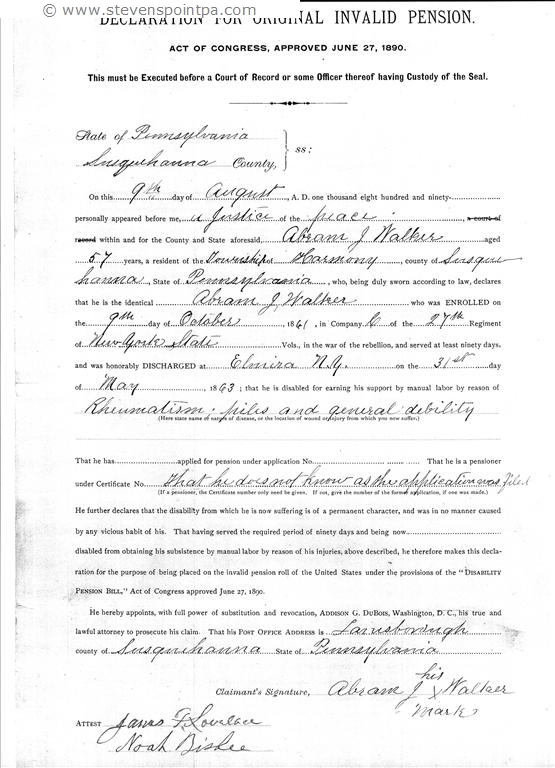 © www.stevenspointpa.com
DECLARATION FOR ORIGINAL INVALID PENSION.
ACT OF CONGRESS, APPROVED JUNE 27, 1890.
This must be Executed before a Court of Record or some Officer thereof having Custody of the Seal.
State of Pennsylvania
Susquehanna County, } ss:
On this 9th day of August, A. D. one thousand eight hundred and ninety-
personally appeared before me, a Justice of the peace, a court of
record within and for the County and State aforesaid, Abram J Walker aged
57 years, a resident of the Township of Harmony, county of Susque
hanna, State of Pennsylvania, who, being duly sworn according to law, declares
that he is the identical Abram J, Walker who was ENROLLED on
the 9th day of October, 1861, in Company C of the 27th Regiment
of New York State Vols., in the war of the rebellion, and served at least ninety days,
and was honorably DISCHARGED at Elmira N.Y. on the 31st day
of May, 1863; that he is disabled for earning his support by manual labor by reason of
Rheumatism; piles and general debility
(Here state name or nature of disease, or the location of wound or injury from which you now suffer.)
That he has applied for pension under application No. That he is a pensioner
under Certificate No. That he does not know as the application was filed
(If a pensioner, the Certificate number only need be given. If not, give the number of the former application, if one was made.)
He further declares that the disability from which he is now suffering is of a permanent character, and was in no manner caused
by any vicious habit of his. That having served the required period of ninety days and being now
disabled from obtaining his subsistence by manual labor by reason of his injuries, above described, he therefore makes this decla-
ration for the purpose of being placed on the invalid pension roll of the United States under the provisions of the "DISABILITY
PENSION BILL," Act of Congress approved June 27, 1890.
He hereby appoints, with full power of substitution and revocation, ADDISON G. DUBOIS, Washington, D. C., his true and
lawful attorney to prosecute his claim. That his POST OFFICE ADDRESS is Lanesborough
county of Susquehanna State of Pennsylvania
his
Claimant's Signature, Abram J X Walker
Mark
ATTEST James F Lovelace
Noah Bisbee